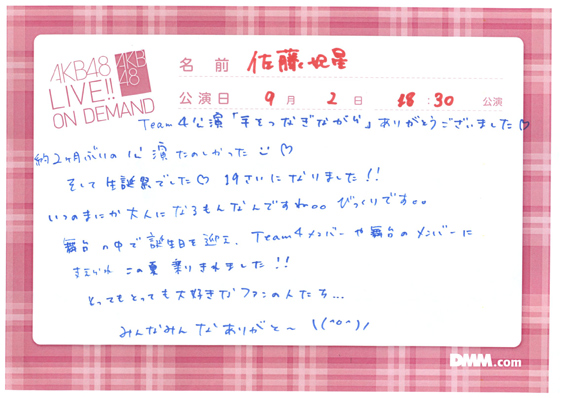 AKB48
LIVE!!
ON DEMAND
AKB
48
名前 佐藤妃星
公演日 9月2日 18:30 公演
Team4公演「手をつなぎながら」ありがとうございました♡
約2ヶ月ぶりの公演たのしかった ♡
そして生誕祭でした♡ 19さいになりました!!
いつのまにか大人になるもんなんですね。。びっくりです。。
舞台の中で誕生日を迎え、Team4メンバーや舞台のメンバーに
ささえられ この夏 乗りきれました!!
とってもとっても大好きなファンの人たち...
みんなみんなありがと〜 \(^o^)/
DMM.com